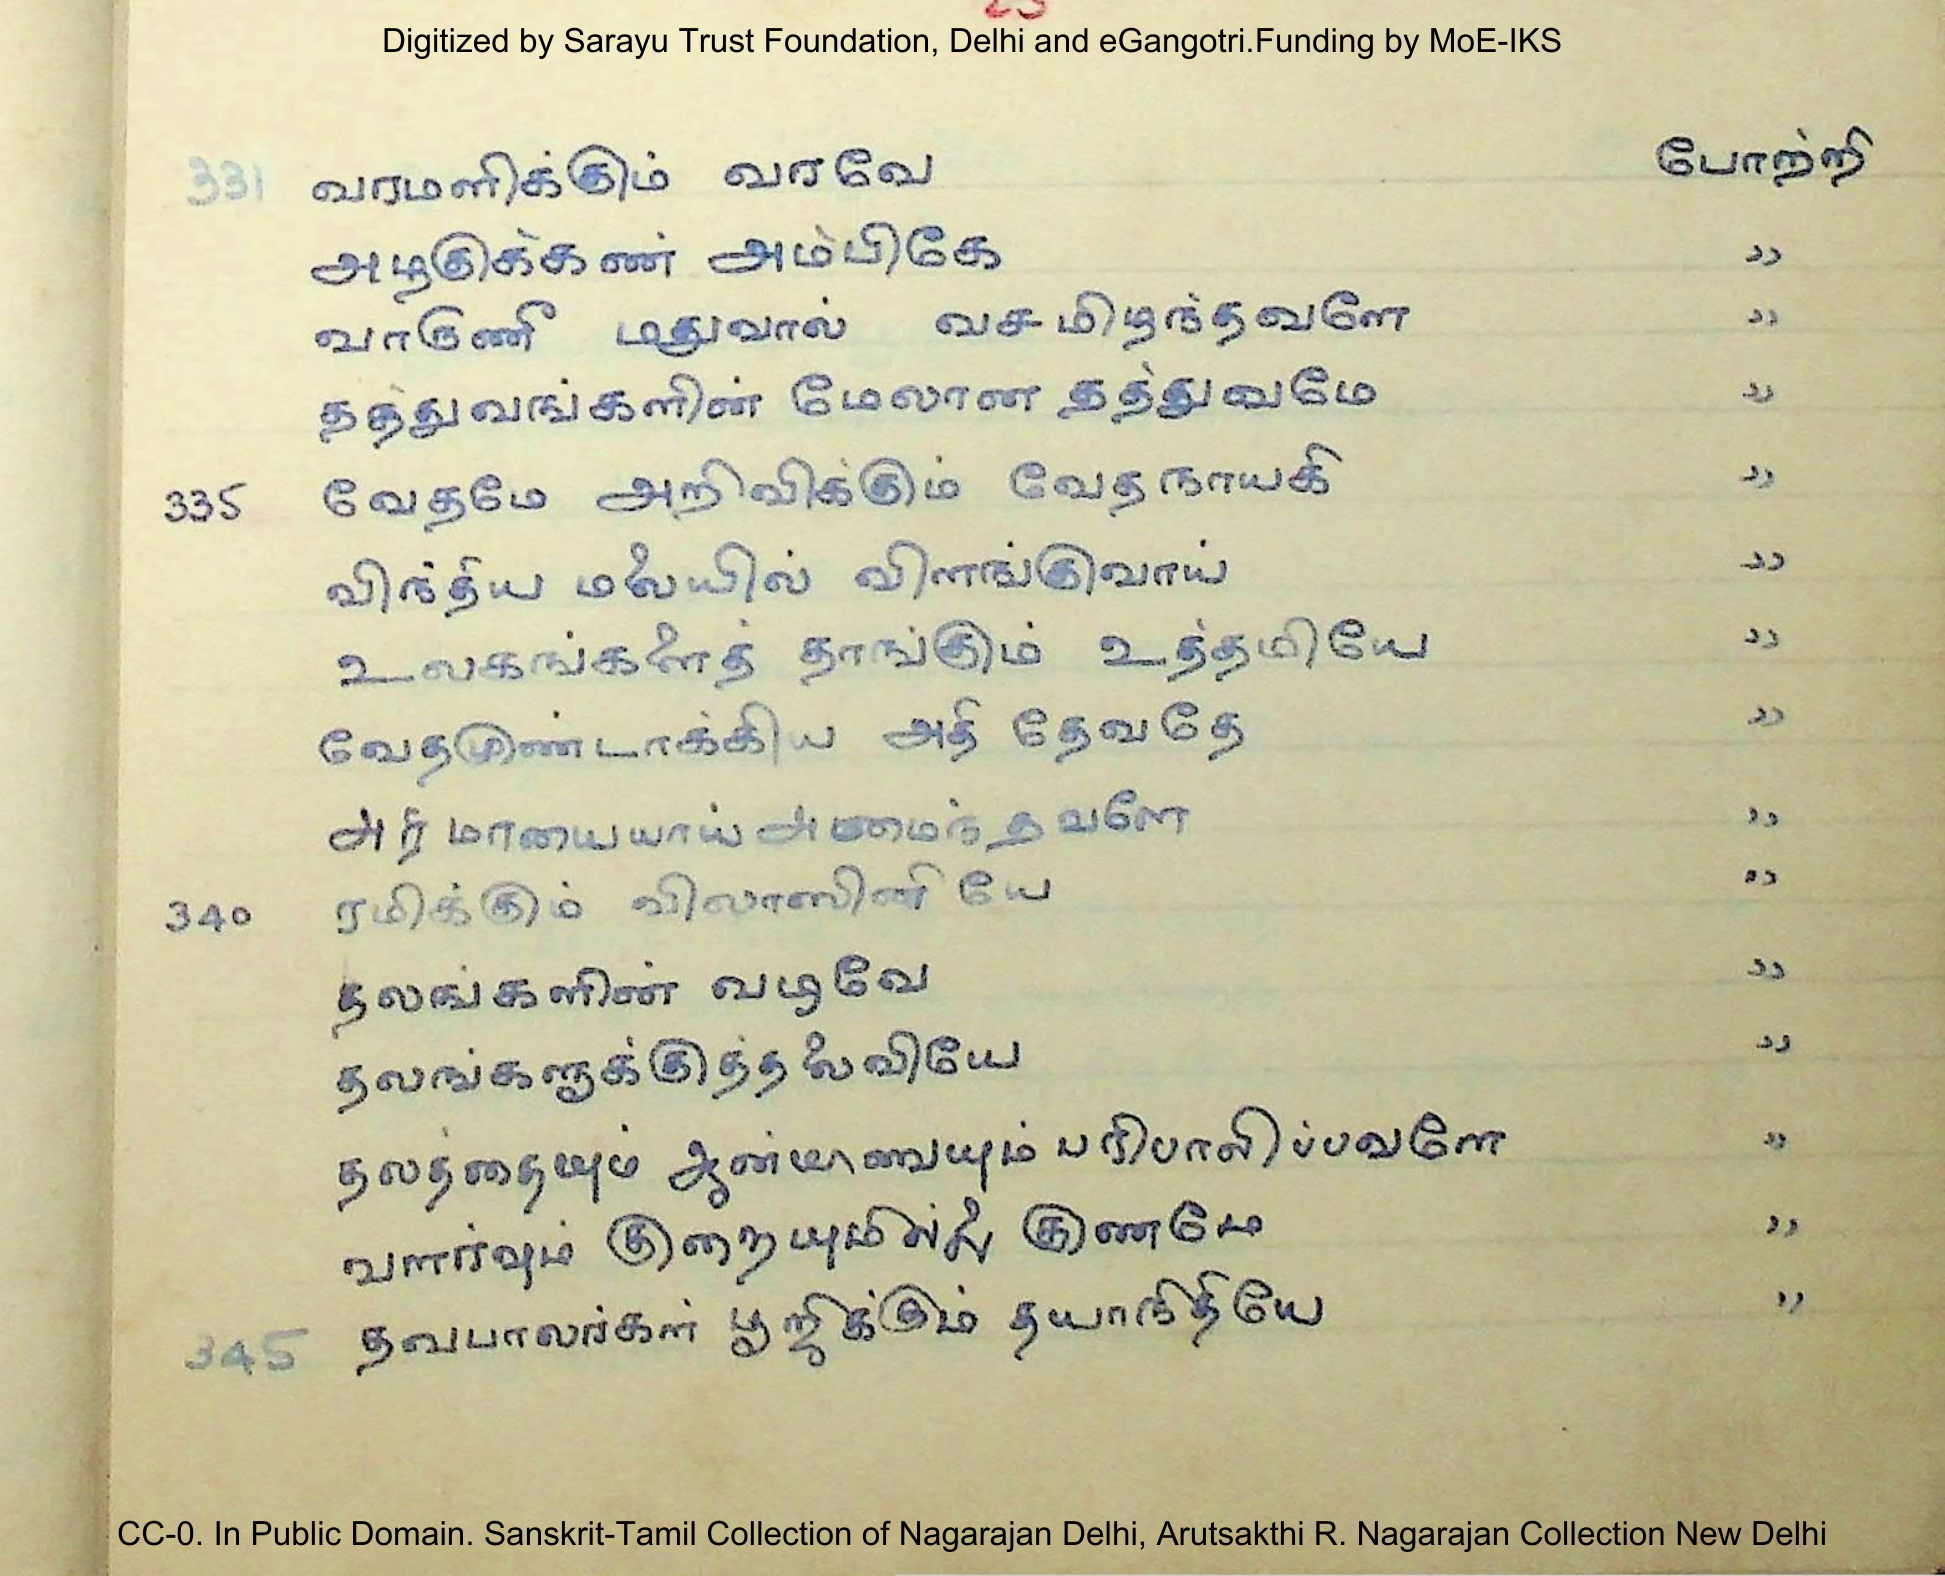 Digitized by Sarayu Trust Foundation, Delhi and eGangotri.Funding by MoE-IKS
331 வரமளிக்கும் வரவே போற்றி
அழகுக்கண் அம்பிகே ,,
வாருணீ மதுவால் வசமிழந்தவளே ,,
தத்துவங்களின் மேலான தத்துவமே ,,
335 வேதமே அறிவிக்கும் வேதநாயகி ,,
விந்திய மலையில் விளங்குவாய் ,,
உலகங்களைத் தாங்கும் உத்தமியே ,,
வேதமுண்டாக்கிய அதி தேவதே ,,
மாயையாய் அமைந்தவளே ,,
340 ரமிக்கும் விலாஸினியே ,,
தலங்களின் வழவே ,,
தலங்களுக்குத்தலைவியே ,,
தலத்தையும் ஆன்மாவையும் பரிபாலிப்பவளே ,,
வளர்வும் குறையுமில்லை குணமே ,,
345 தவபாலர்கள் பூஜிக்கும் தயாநிதியே ,,
CC-0. In Public Domain. Sanskrit-Tamil Collection of Nagarajan Delhi, Arutsakthi R. Nagarajan Collection New Delhi